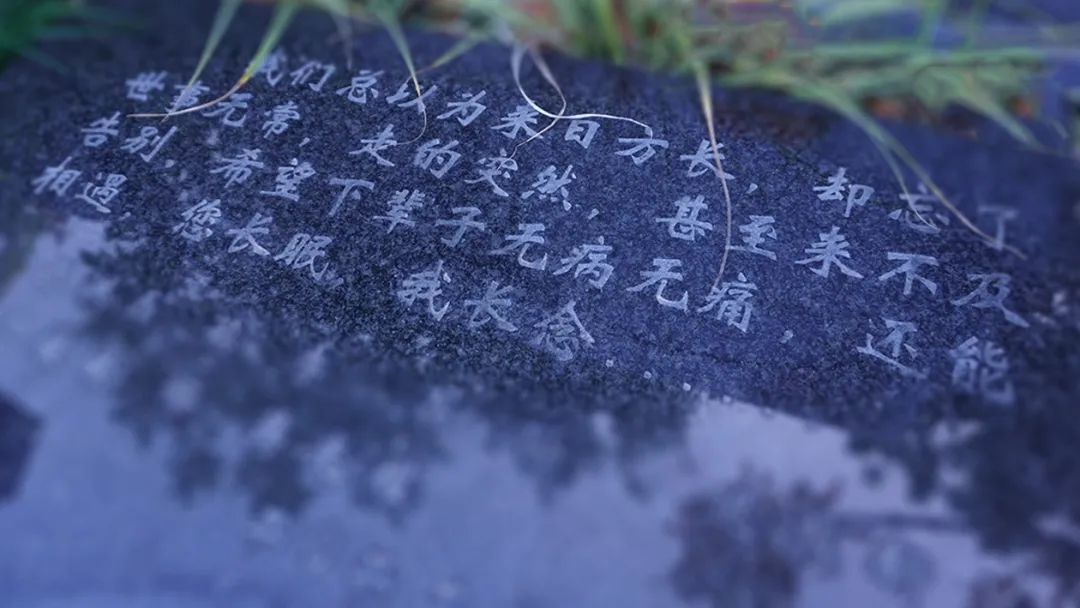 我们总以为来日方长，却忘了
世事无常，走的突然，甚至来不及
告别，希望下辈子无病无痛，还能
相遇，您长眠，我长念...